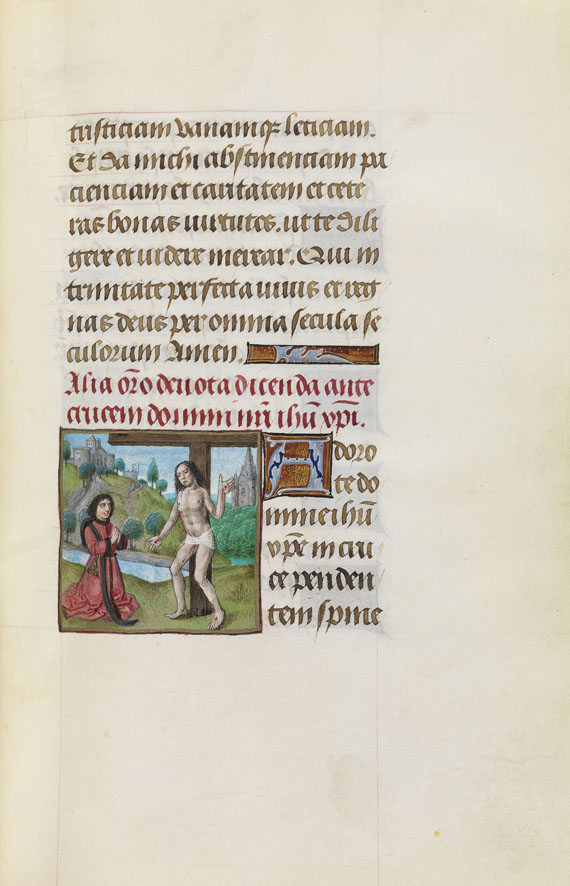 tristiciam vanamqꝫ leticiam.
Et da michi abstinenciam pa
cienciam et caritatem et cete
ras bonas uirtutes. ut te dili
gere et uidere merear. Qui in
trinitate perfecta uiuis et reg
nas deus per omnia secula se
culorum Amen.
Alia oro deuota dicenda ante
crucem domini nri ihu xpi.
Adoro
te do
mine ihu
xpe in cru
ce penden
tem spine